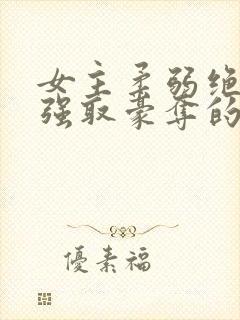 女主柔弱绝
强取豪夺的
優素福